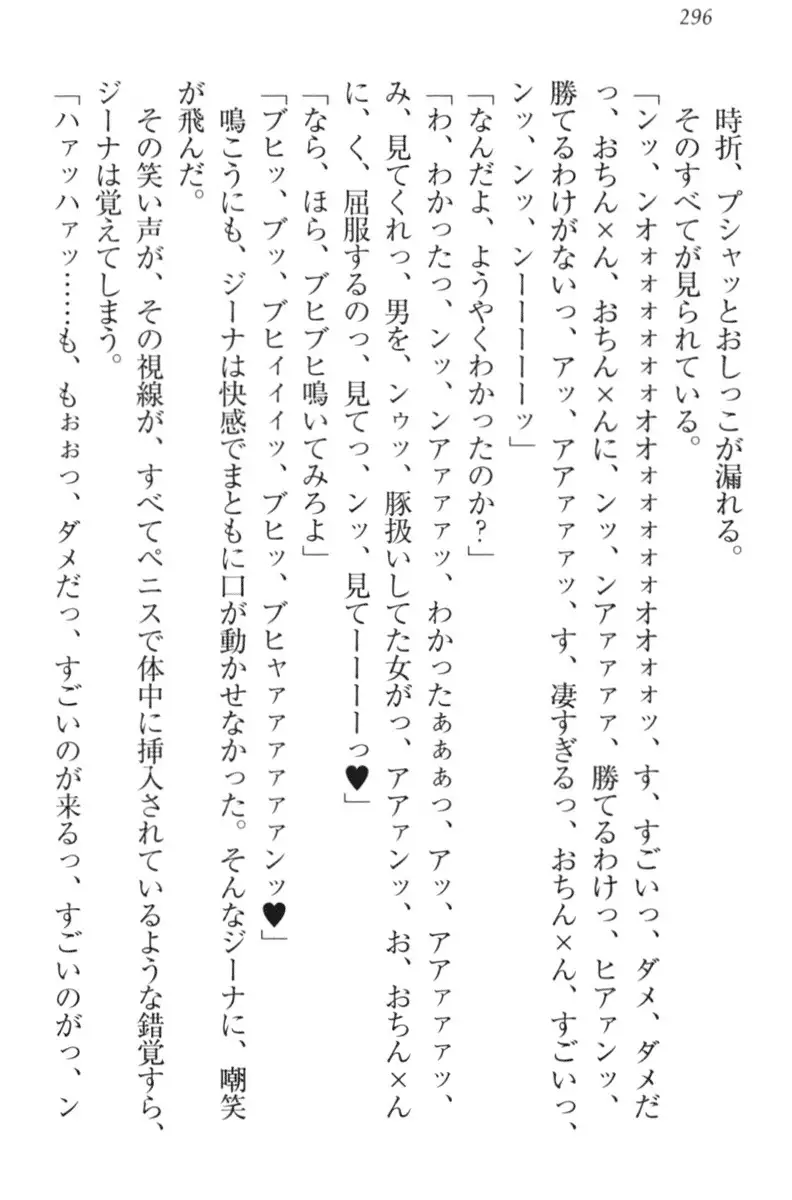 296
時折、プシャッとおしっこが漏れる。
そのすべてが見られている。
「ンッ、ンオォォォォォオオォォォォォオオォォッ、す、すごいっ、ダメ、ダメだ
っ、おちん×ん、おちん×んに、ンッ、ンアァァァァ、勝てるわけっ、ヒアァンッ、
勝てるわけがないっ、アッ、アアァァァッ、す、凄すぎるっ、おちん×ん、すごいっ、
ンッ、ンッ、ンーーーーーッ」
「なんだよ、ようやくわかったのか?」
「わ、わかったっ、ンッ、ンアァァァッ、わかったぁぁぁっ、アッ、アアァァァッ、
み、見てくれっ、男を、ンゥッ、豚扱いしてた女がっ、アアァンッ、お、おちん×ん
に、く、屈服するのっ、見てっ、ンッ、見てーーーーっ♥」
「なら、ほら、ブヒブヒ鳴いてみろよ」
「ブヒッ、ブッ、ブヒィィィッ、ブヒッ、ブヒャァァァァァァンッ♥」
鳴こうにも、ジーナは快感でまともに口が動かせなかった。そんなジーナに、嘲笑
が飛んだ。
その笑い声が、その視線が、すべてペニスで体中に挿入されているような錯覚すら、
ジーナは覚えてしまう。
「ハァッハァッ……も、もぉぉっ、ダメだっ、すごいのが来るっ、すごいのがっ、ン